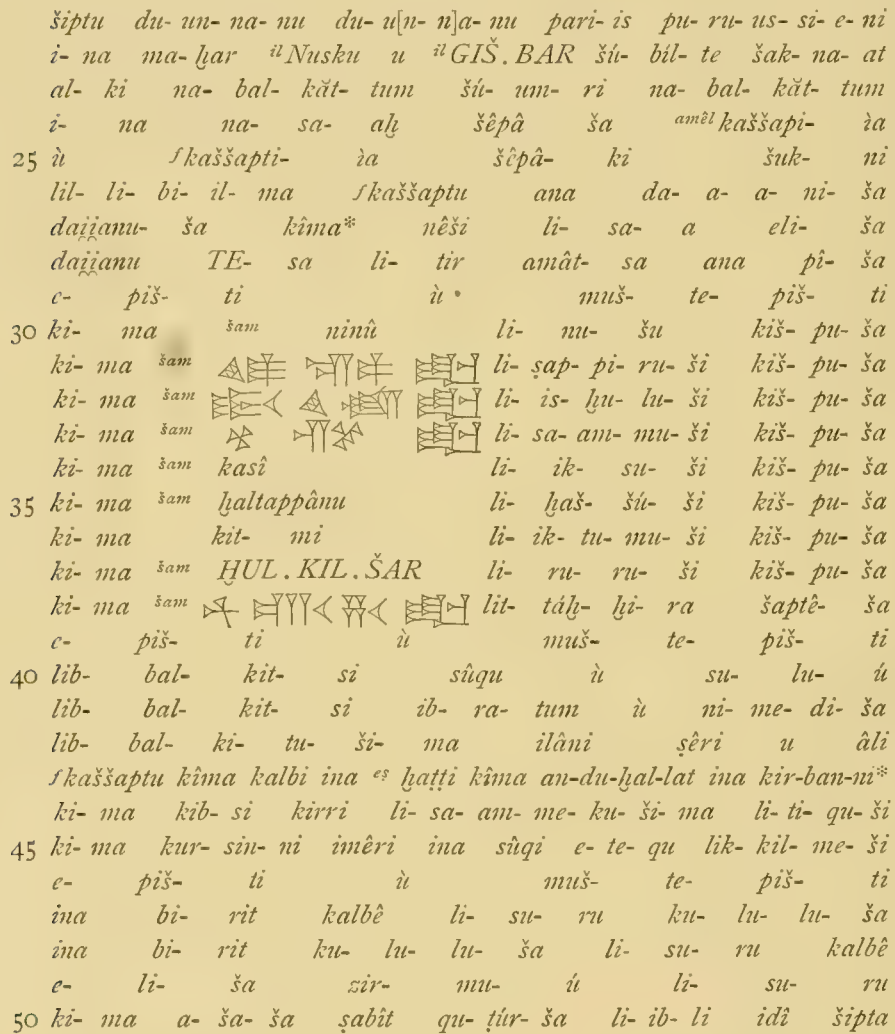 šiptu du- un- na- nu du- u[n- n]a- nu pari- is pu- ru- us- si- e- ni
i- na ma- ḫar il Nusku u il GIŠ.BAR šú- bíl- te šak- na- at
al- ki na- bal- kăt- tum šú- um- ri na- bal- kăt- tum
i- na na- sa- aḫ šêpâ ša amêl kaššapi- ịa
25 ù f kaššapti- ịa šêpâ- ki šuk- ni
lil- li- bi- il- ma f kaššaptu ana da- a- a- ni- ša
daịịanu- ša kîma* nêši li- sa- a eli- ša
daịịanu TE- sa li- tir amât- sa ana pî- ša
e- piš- ti ù muš- te- piš- ti
30 ki- ma šam ninû li- nu- šu kiš- pu- ša
ki- ma šam li- ṣap- pi- ru- ši kiš- pu- ša
ki- ma šam li- is- ḫu- lu- ši kiš- pu- ša
ki- ma šam li- sa- am- mu- ši kiš- pu- ša
ki- ma šam kasî li- ik- su- ši kiš- pu- ša
35 ki- ma šam ḫaltappânu li- ḫaš- šú- ši kiš- pu- ša
ki- ma kit- mi li- ik- tu- mu- ši kiš- pu- ša
ki- ma šam ḪUL.KIL.ŠAR li- ru- ru- ši kiš- pu- ša
ki- ma šam lit- táḫ- ḫi- ra šaptê- ša
e- piš- ti ù muš- te- piš- ti
40 lib- bal- kit- si sûqu ù su- lu- ú
lib- bal- kit- si ib- ra- tum ù ni- me- di- ša
lib- bal- ki- tu- ši- ma ilâni ṣêri u âli
f kaššaptu kîma kalbi ina eṣ ḫaṭṭi kîma an-du-ḫal-lat ina kir-ban-ni*
ki- ma kib- si kirri li- sa- am- me- ku- ši- ma li- ti- qu- ši
45 ki- ma kur- sin- ni imêri ina sûqi e- te- qu lik- kil- me- ši
e- piš- ti ù muš- te- piš- ti
ina bi- rit kalbê li- su- ru ku- lu- lu- ša
ina bi- rit ku- lu- lu- ša li- su- ru kalbê
e- li- ša zir- mu- ú li- su- ru
50 ki- ma a- ša- ša ṣabît qu- ṭúr- ša li- ib- li idî šipta